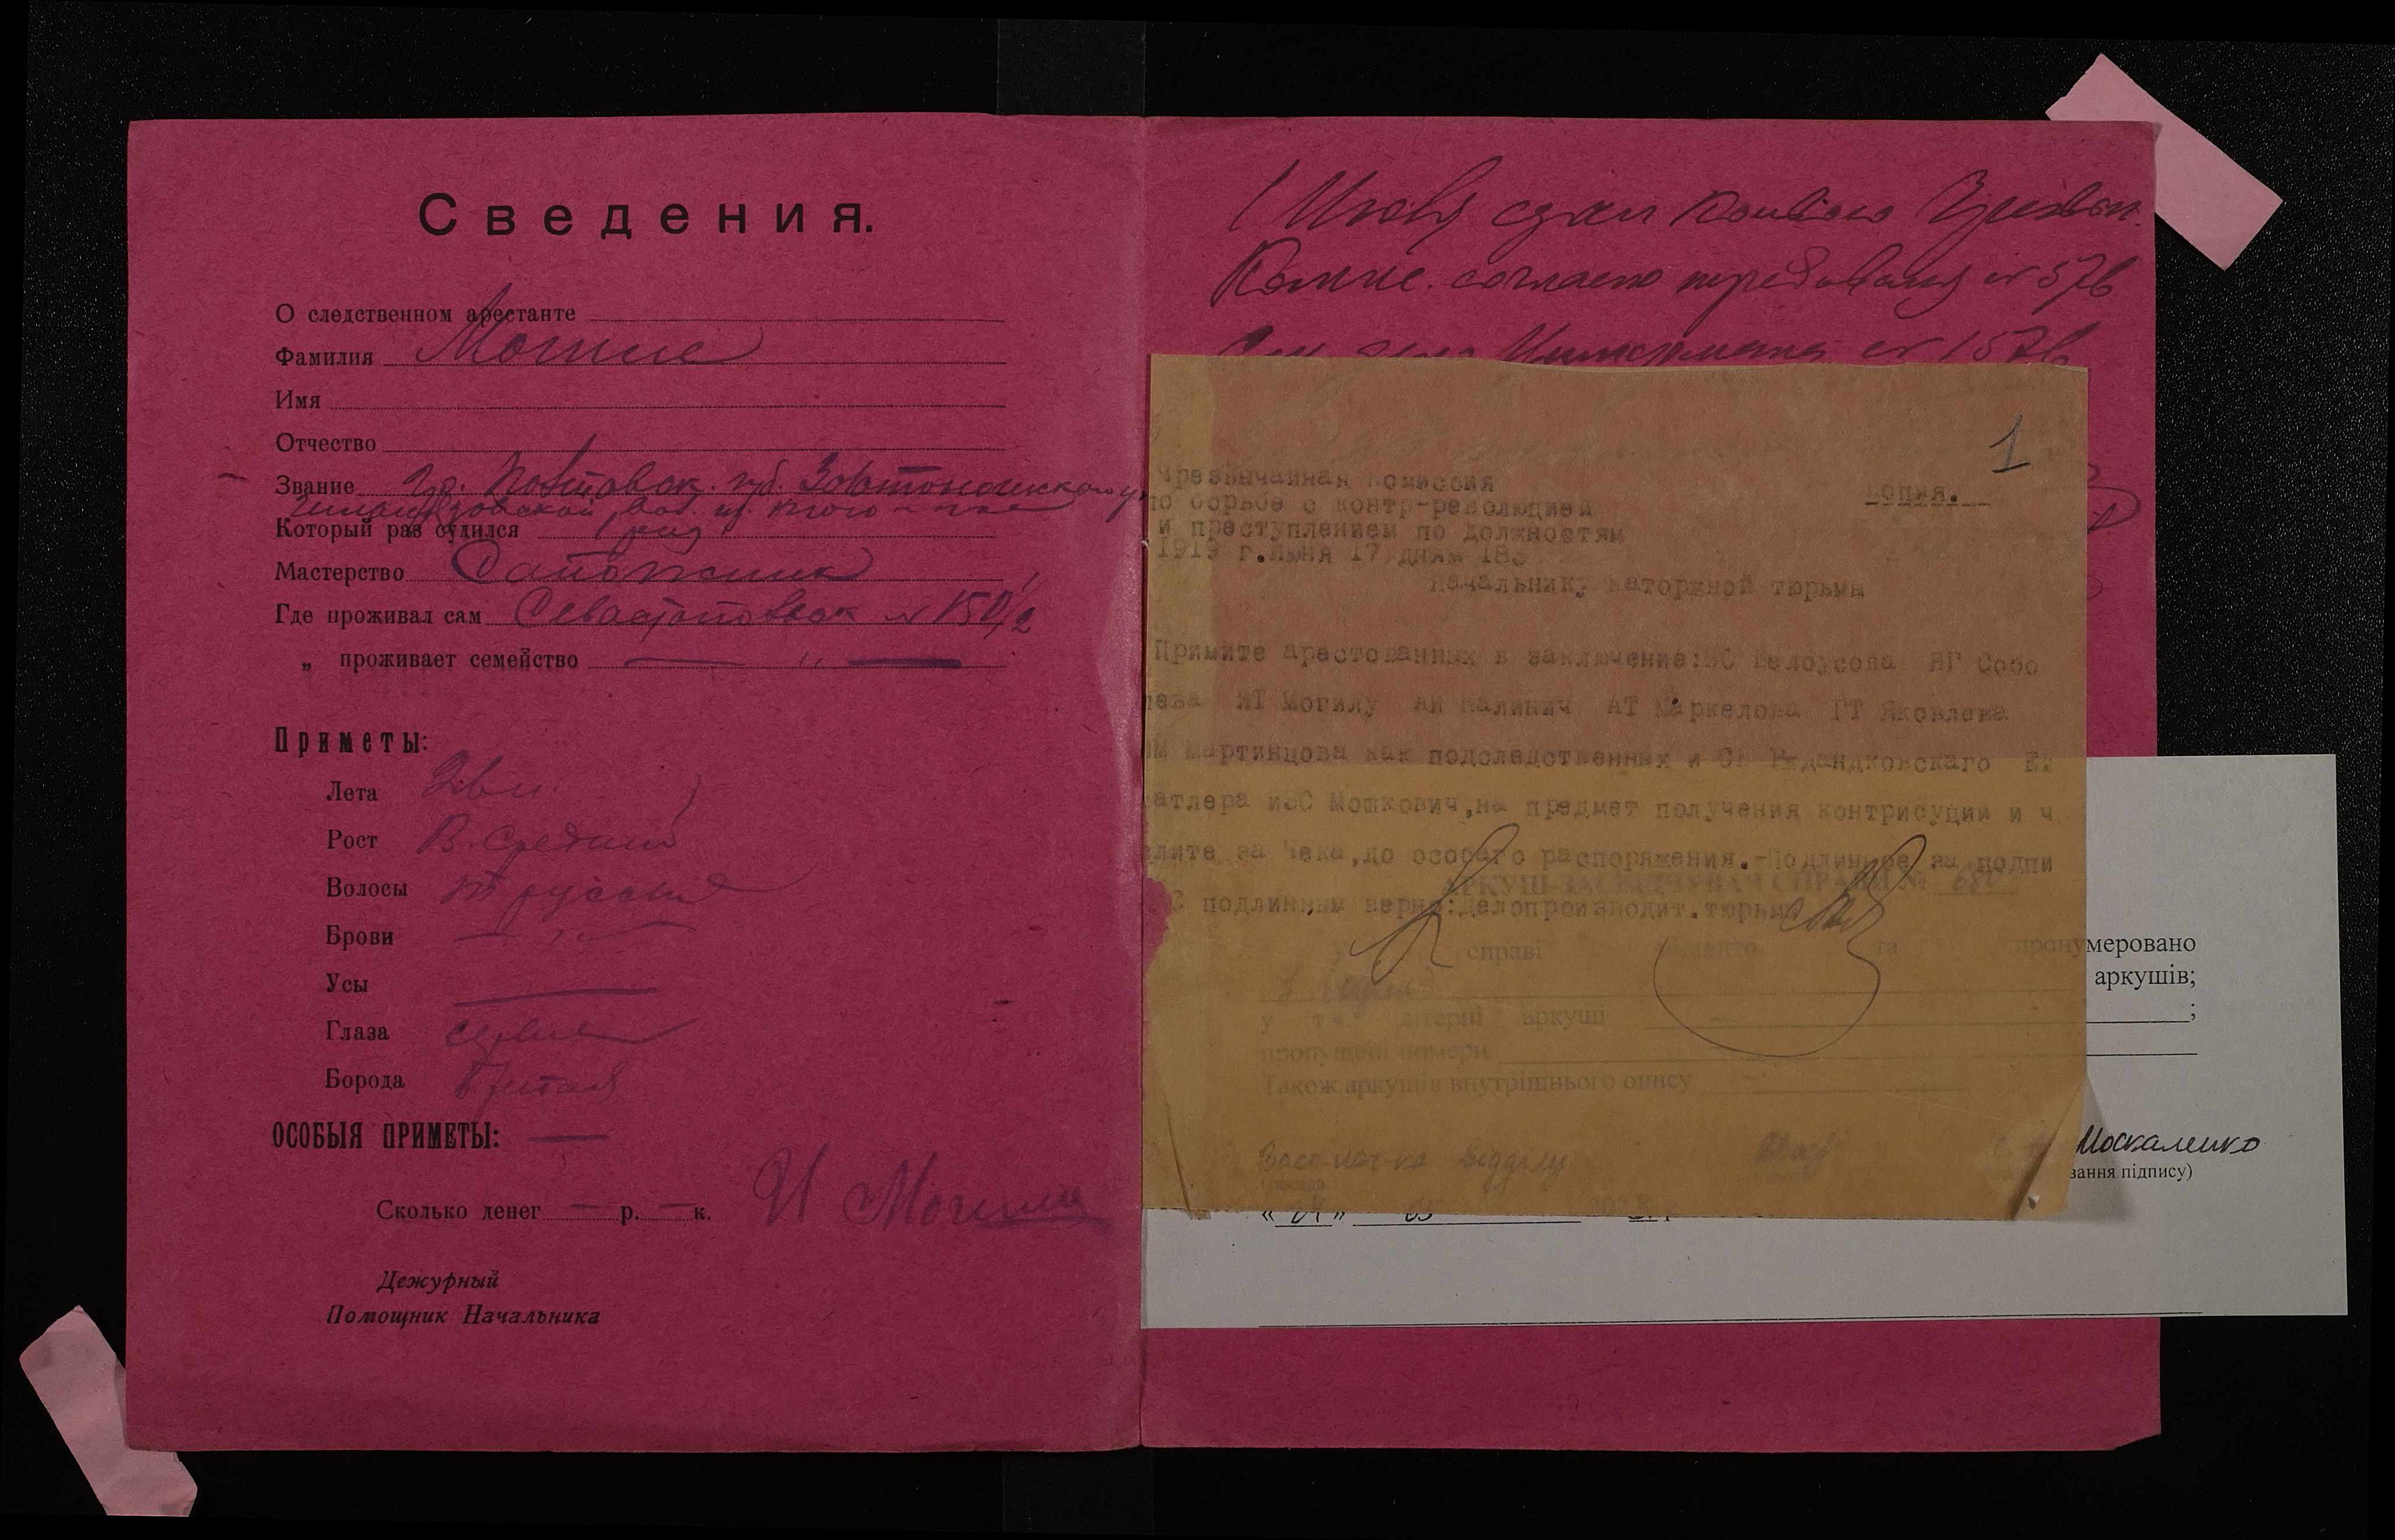 Сведения.
О следственном арестанте
Фамилия Могиле
Имя
Отчество
Звание Гр. Полтавск. губ. Золотоношского у.
вол.
Который раз судился 1 раз
Мастерство Сапожник
Где проживал сам Севастопольск № 150/2
„ проживает семейство — „ —
Приметы:
Лета
Рост В. Средний
Волосы т русые
Брови
Усы —
Глаза серые
Борода бритая
ОСОБЫЯ ПРИМЕТЫ: —
Сколько денег — р. — к.
И Могила
Дежурный
Помощник Начальника
1 Июля сдан конвою
Комис. согласно требования № 576
№ 1576
1
Чрезвычайная комиссия
Копия.
по борьбе с контр-революцией
и преступлением по должностям
1919 г. Июня 17 дня № 183
Начальнику Каторжной тюрьмы
Примите арестованных в заключение: Белоусова ЯГ Собо
лева ИТ Могилу АИ Калинич АТ Маркелова ГТ Яковлева
Мартинцова как подследственных и
атлера и ЗС Мошкович, на предмет получения контрибуции и ч
слите за Чека, до особаго распоряжения.-Подлинное за подпи
С подлинным верно: Делопроизводит. тюрьмы
АРКУШ-ЗАСВІДЧУВАЧ СПРАВИ № 680
У справі підшито та пронумеровано
аркушів;
у т.ч. літерні аркуші ;
пропущені номери
Також аркушів внутрішнього опису
Заст. нач-ка відділу
Москаленко
вання підпису)
05